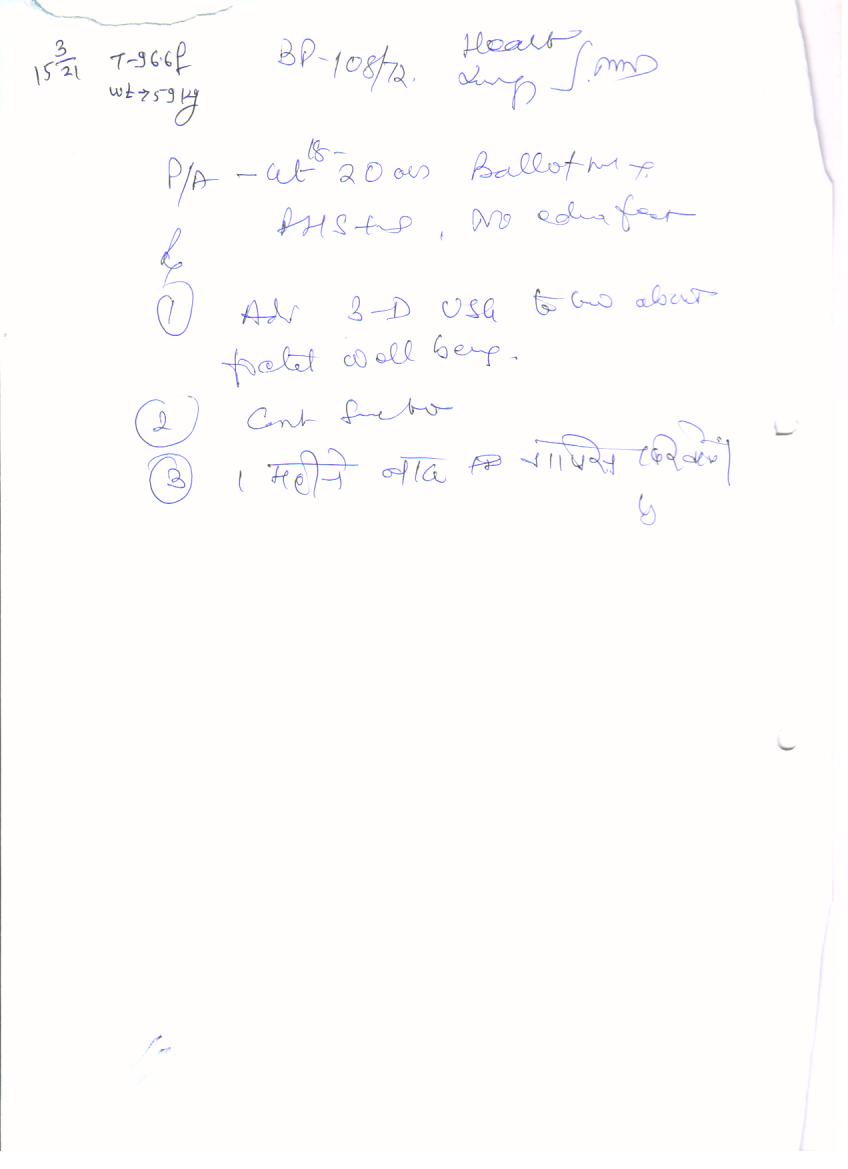 15 3/21 T-96.6f BP-108/72. Heart
wt→59kg Lungs NAD
P/A - ut 18- 20 ws Ballotment +
FHS +ve, No edema feet
Rx
① Adv 3-D USG to know about
foetal well being.
② Cont
③ 1 महीने बाद वापिस दिखायें